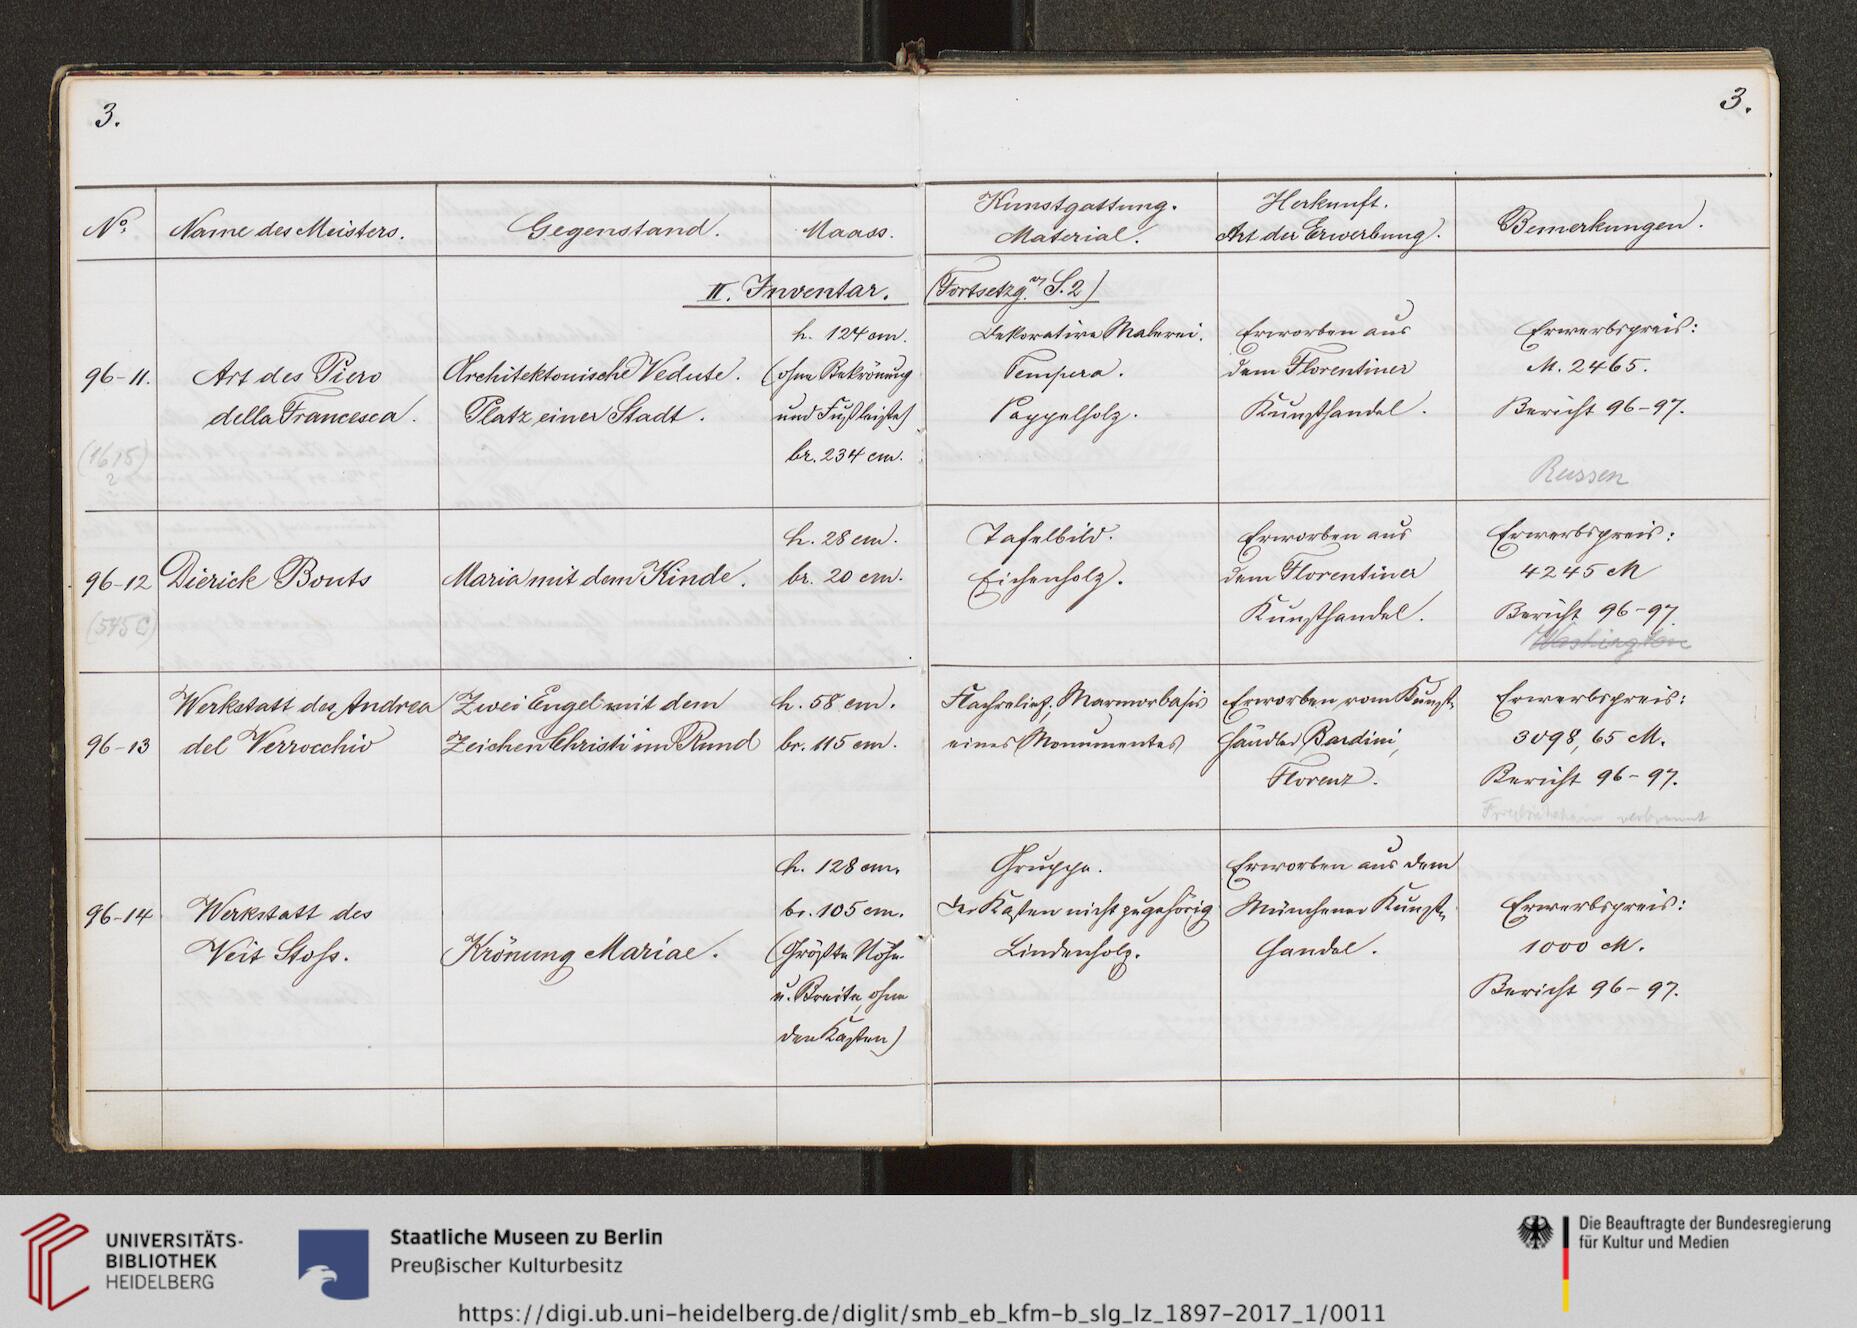 3.
3.
No.
Name des Meisters.
Gegenstand.
Maass.
Kunstgattung.
Material.
Herkunft.
Art der Erwerbung.
Bemerkungen.
II. Inventar. (Fortsetzg. v. S. 2)
96-11.
(1615)
2
Art des Piero
della Francesca.
Architektonische Vedute.
Platz einer Stadt.
h. 124 cm.
(ohne Bekrönung
und Fußleiste)
br. 234 cm.
Dekorative Malerei.
Tempera.
Pappelholz.
Erworben aus
dem Florentiner
Kunsthandel.
Erwerbspreis:
M. 2465.
Bericht 96-97.
Russen
96-12
(545 C)
Dierick Bouts
Maria mit dem Kinde.
h. 28 cm.
br. 20 cm.
Tafelbild.
Eichenholz.
Erworben aus
dem Florentiner
Kunsthandel.
Erwerbspreis:
4245 M
Bericht 96-97.
Washington
96-13
Werkstatt des Andrea
del Verrocchio
Zwei Engel mit dem
Zeichen Christi im Rund
h. 58 cm.
br. 115 cm.
Flachrelief, Marmorbasis
eines Monumentes
Erworben vom Kunst-
händler Bardini,
Florenz.
Erwerbspreis:
3098,65 M.
Bericht 96-97.
Friedrichshain verbrannt
96-14
Werkstatt des
Veit Stoss.
Krönung Mariae.
h. 128 cm.
br. 105 cm.
(Größte Höhe
u. Breite, ohne
den Kasten)
Gruppe.
Der Kasten nicht zugehörig
Lindenholz.
Erworben aus dem
Münchener Kunst-
handel.
Erwerbspreis:
1000 M.
Bericht 96-97.
UNIVERSITÄTS-
BIBLIOTHEK
HEIDELBERG
Staatliche Museen zu Berlin
Preußischer Kulturbesitz
Die Beauftragte der Bundesregierung
für Kultur und Medien
https://digi.ub.uni-heidelberg.de/diglit/smb_eb_kfm-b_slg_lz_1897-2017_1/0011